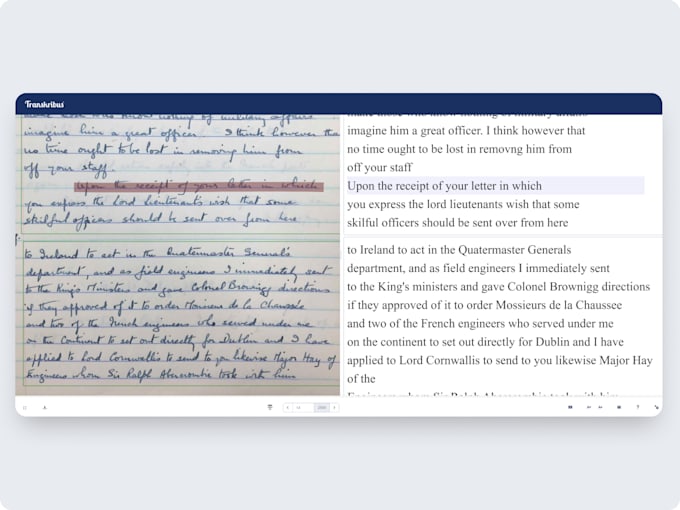 Transkribus
know nothing of military affairs
imagine him a great officer. I think however tha
no time ought to be lost in removing him from
off your staff.
Upon the receipt of your letter in which
you express the Lord Lieutenant's wish that some
skilful officers should be sent over from here
to Ireland to act in the Quatermaster General's
department, and as field engineers I immediately sent
to the King's Ministers and gave Colonel Brownigg directions
if they approved of it to order Monsieur de la Chaussée
and two of the French engineers who served under me
on the Continent to set out directly for Dublin and I have
applied to Lord Cornwallis to send to you likewise Major Hay of
Engineers whom Sir Ralph Abercrombie took with him
make those who know nothing of military affairs
imagine him a great officer. I think however that
no time ought to be lost in removng him from
off your staff
Upon the receipt of your letter in which
you express the lord lieutenants wish that some
skilful officers should be sent over from here
to Ireland to act in the Quatermaster Generals
department, and as field engineers I immediately sent
to the King's ministers and gave Colonel Brownigg directions
if they approved of it to order Mossieurs de la Chaucee
and two of the French engineers who served under me
on the continent to set out directly for Dublin and I have
applied to Lord Cornwallis to send to you likewise Major Hay
of the